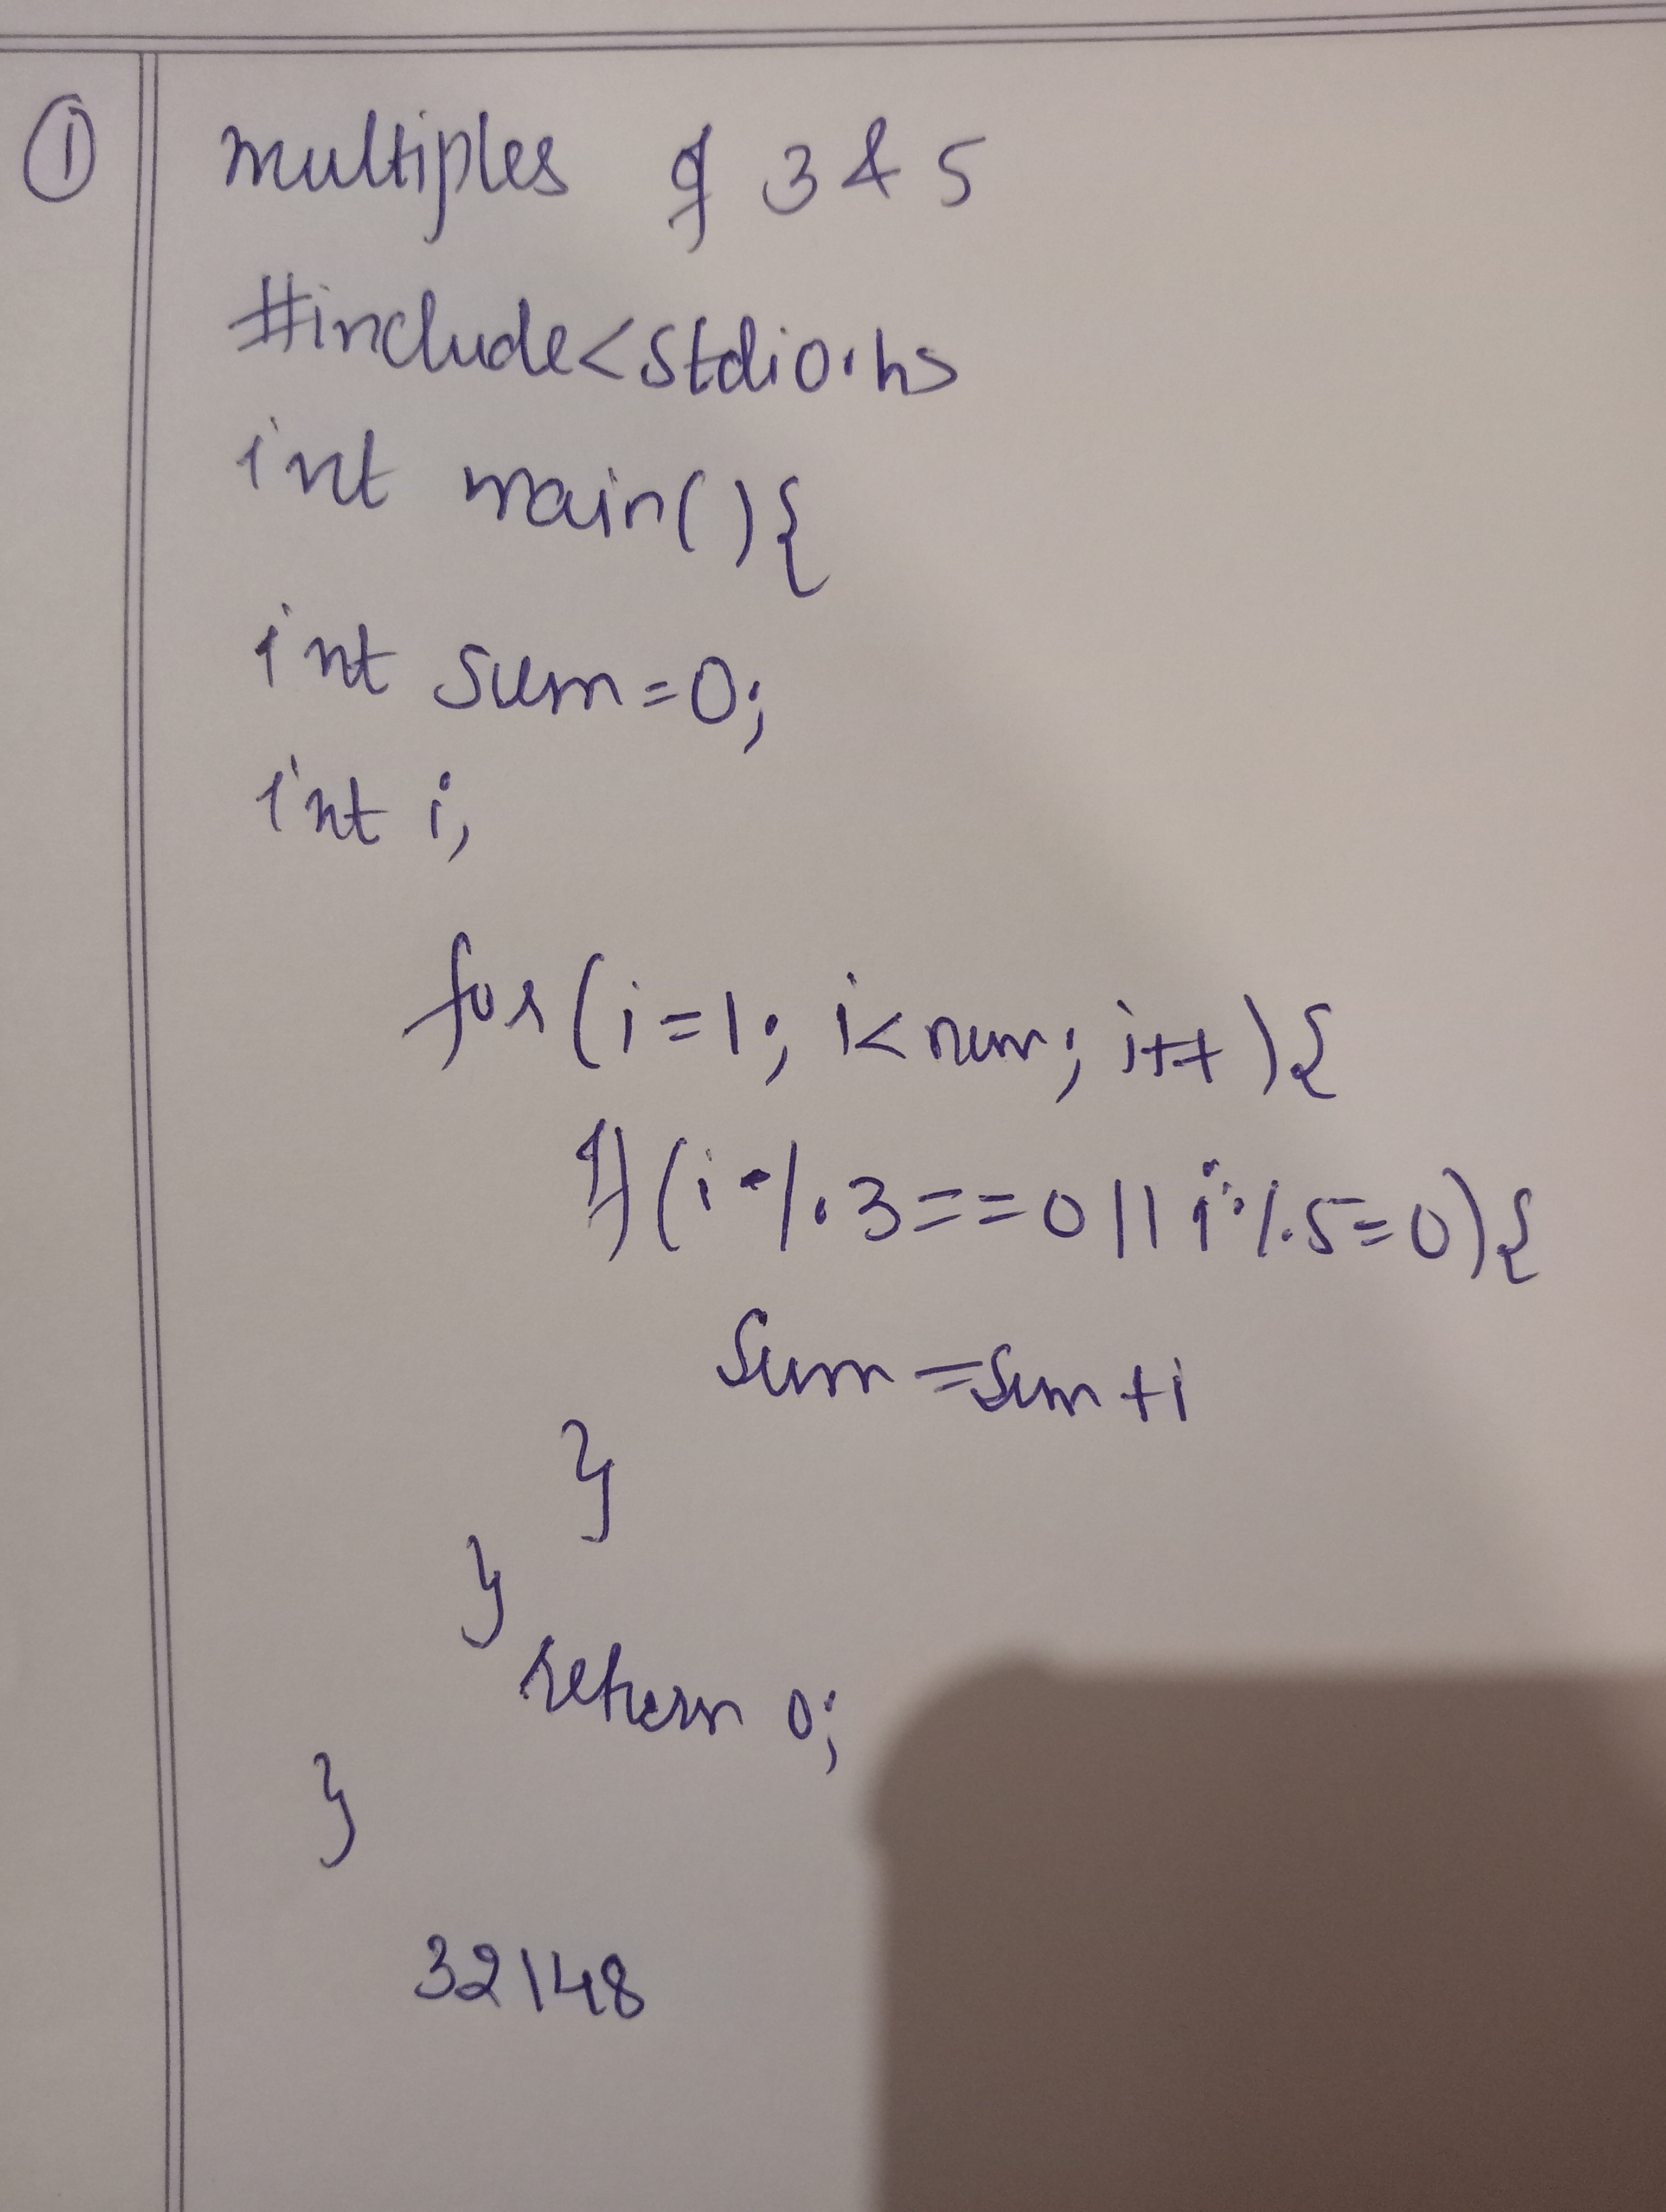 ①
multiples of 3 & 5
#include<stdio.h>
int main(){
int sum=0;
int i;
for(i=1; i<num; i++){
if(i%3==0||i%5=0){
sum=sum+i
}
}
return 0;
}
32148